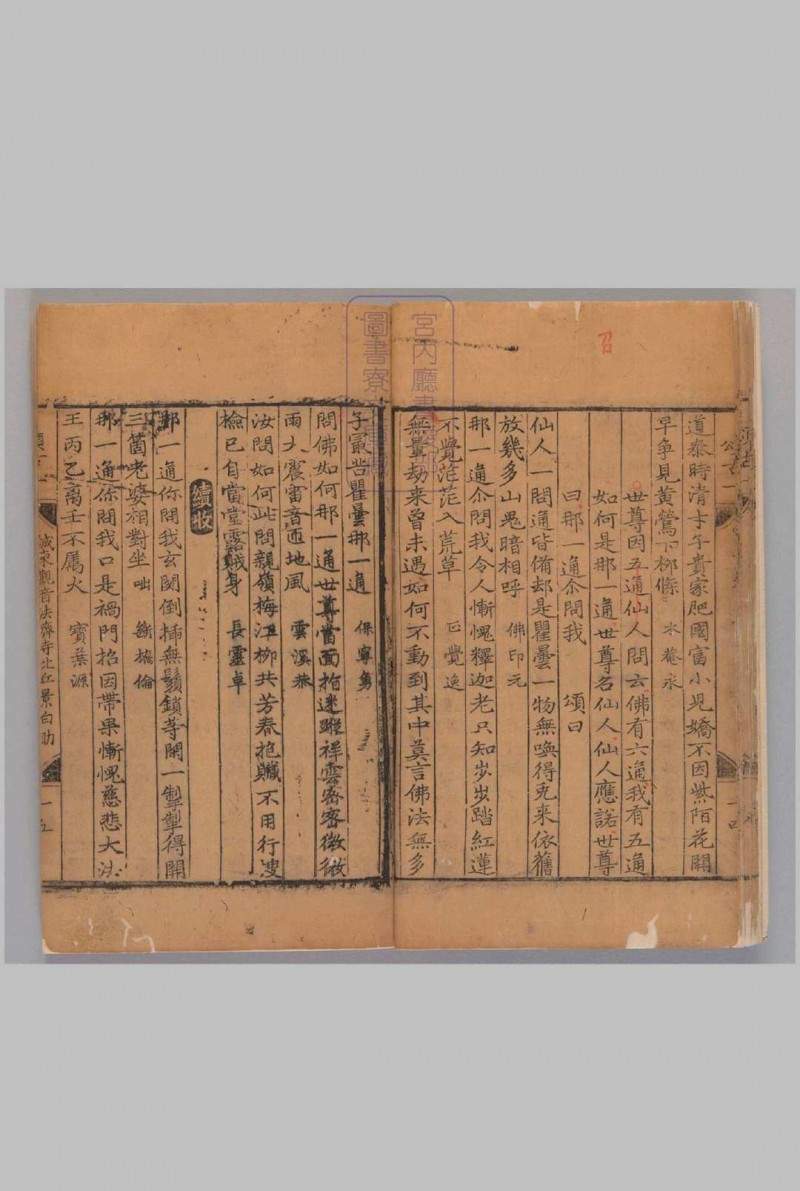 道泰時清才子貴家肥國富小兒嬌不因紫陌花開
早爭見黃鶯下柳條　木菴永
世尊因五通仙人問云佛有六通我有五通
如何是那一通世尊召仙人仙人應諾世尊
曰那一通你問我　頌曰
仙人一問通皆備却是瞿曇一物無喚得克來依舊
放幾多山鬼暗相呼　佛印元
那一通你問我令人慚愧釋迦老只知步步踏紅蓮
不覺茫茫入荒草　正覺逸
無量劫來曾未遇如何不動到其中莫言佛法無多
子最苦瞿曇那一通　保寧勇
問佛如何那一通世尊當面指迷蹤祥雲密密微微
雨大震雷音匝地風　雲溪恭
汝問如何此問親嶺梅江柳共芳春抱贓不用行搜
檢已自當堂露賊身　長靈卓
續收
那一通你問我玄関倒插無鬚鎖等閑一掣掣得開
三箇老婆相對坐咄　斷橋倫
那一通你問我口是禍門招因帶果慚愧慈悲大法
王丙乙离壬不屬火　寶葉源
觀音法齊寺比丘景白助
十五
宮內廳
圖書寮
召